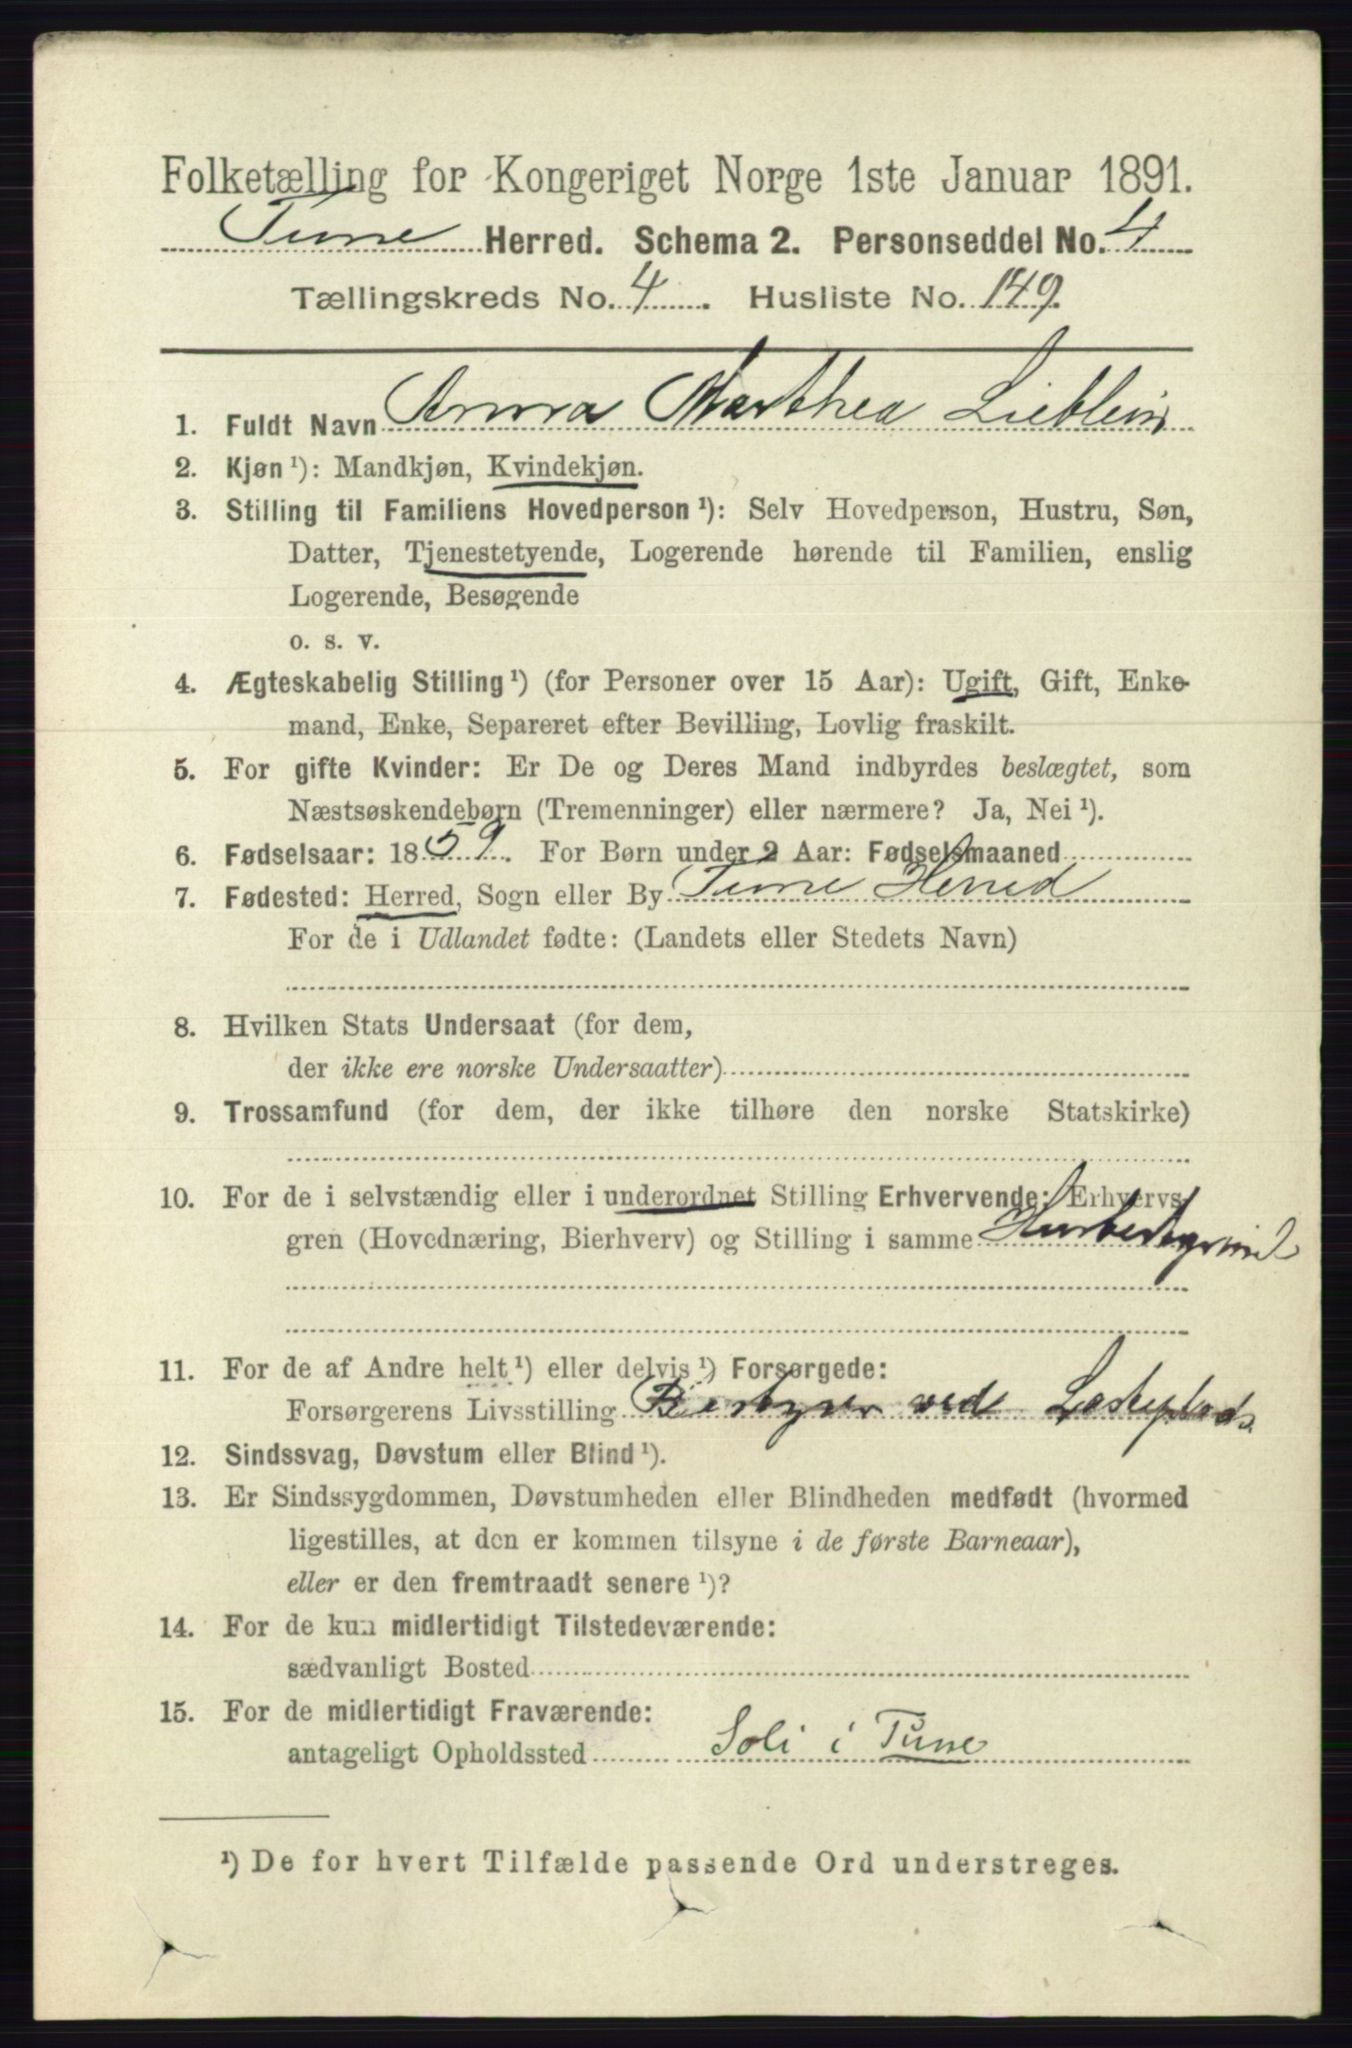 Folketælling for Kongeriget Norge 1ste Januar 1891.
Tune Herred. Schema 2. Personseddel No. 4
Tællingskreds No. 4. Husliste No. 149.
1. Fuldt Navn Anna Marthea Lieblein
2. Kjøn ¹): Mandkjøn, Kvindekjøn.
3. Stilling til Familiens Hovedperson ¹): Selv Hovedperson, Hustru, Søn,
Datter, Tjenestetyende, Logerende hørende til Familien, enslig
Logerende, Besøgende
o. s. v.
4. Ægteskabelig Stilling ¹) (for Personer over 15 Aar): Ugift, Gift, Enke-
mand, Enke, Separeret efter Bevilling, Lovlig fraskilt.
5. For gifte Kvinder: Er De og Deres Mand indbyrdes beslægtet, som
Næstsøskendebørn (Tremenninger) eller nærmere? Ja, Nei ¹).
6. Fødselsaar: 1859. For Børn under 2 Aar: Fødselsmaaned
7. Fødested: Herred, Sogn eller By Tune Herred
For de i Udlandet fødte: (Landets eller Stedets Navn)
8. Hvilken Stats Undersaat (for dem,
der ikke ere norske Undersaatter)
9. Trossamfund (for dem, der ikke tilhøre den norske Statskirke)
10. For de i selvstændig eller i underordnet Stilling Erhvervende: Erhvervs-
gren (Hovednæring, Bierhverv) og Stilling i samme
11. For de af Andre helt ¹) eller delvis ¹) Forsørgede:
Forsørgerens Livsstilling Bestyrer ved
12. Sindssvag, Døvstum eller Blind ¹).
13. Er Sindssygdommen, Døvstumheden eller Blindheden medfødt (hvormed
ligestilles, at den er kommen tilsyne i de første Barneaar),
eller er den fremtraadt senere ¹)?
14. For de kun midlertidigt Tilstedeværende:
sædvanligt Bosted
15. For de midlertidigt Fraværende:
antageligt Opholdssted Soli i Tune
¹) De for hvert Tilfælde passende Ord understreges.